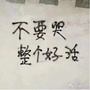 不要哭
整个好活